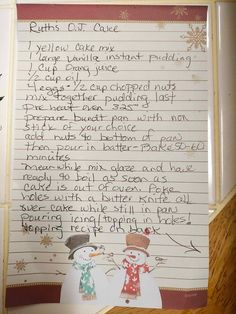 Ruth's O.J. Cake
1 yellow cake mix
1 large vanilla instant pudding
1 cup orang juice
1/2 cup oil
4 eggs - 1/2 cup chopped nuts
mix together pudding last
Pre heat oven 325°
prepare bundt pan with non
stick of your choice
add nuts to bottom of pan
then pour in batter - Bake 50-60
minutes
meanwhile mix glaze and have
ready to boil as soon as
cake is out of oven. Poke
holes with a butter knife all
over cake while still in pan
pouring icing/topping in holes!
topping recipe on back